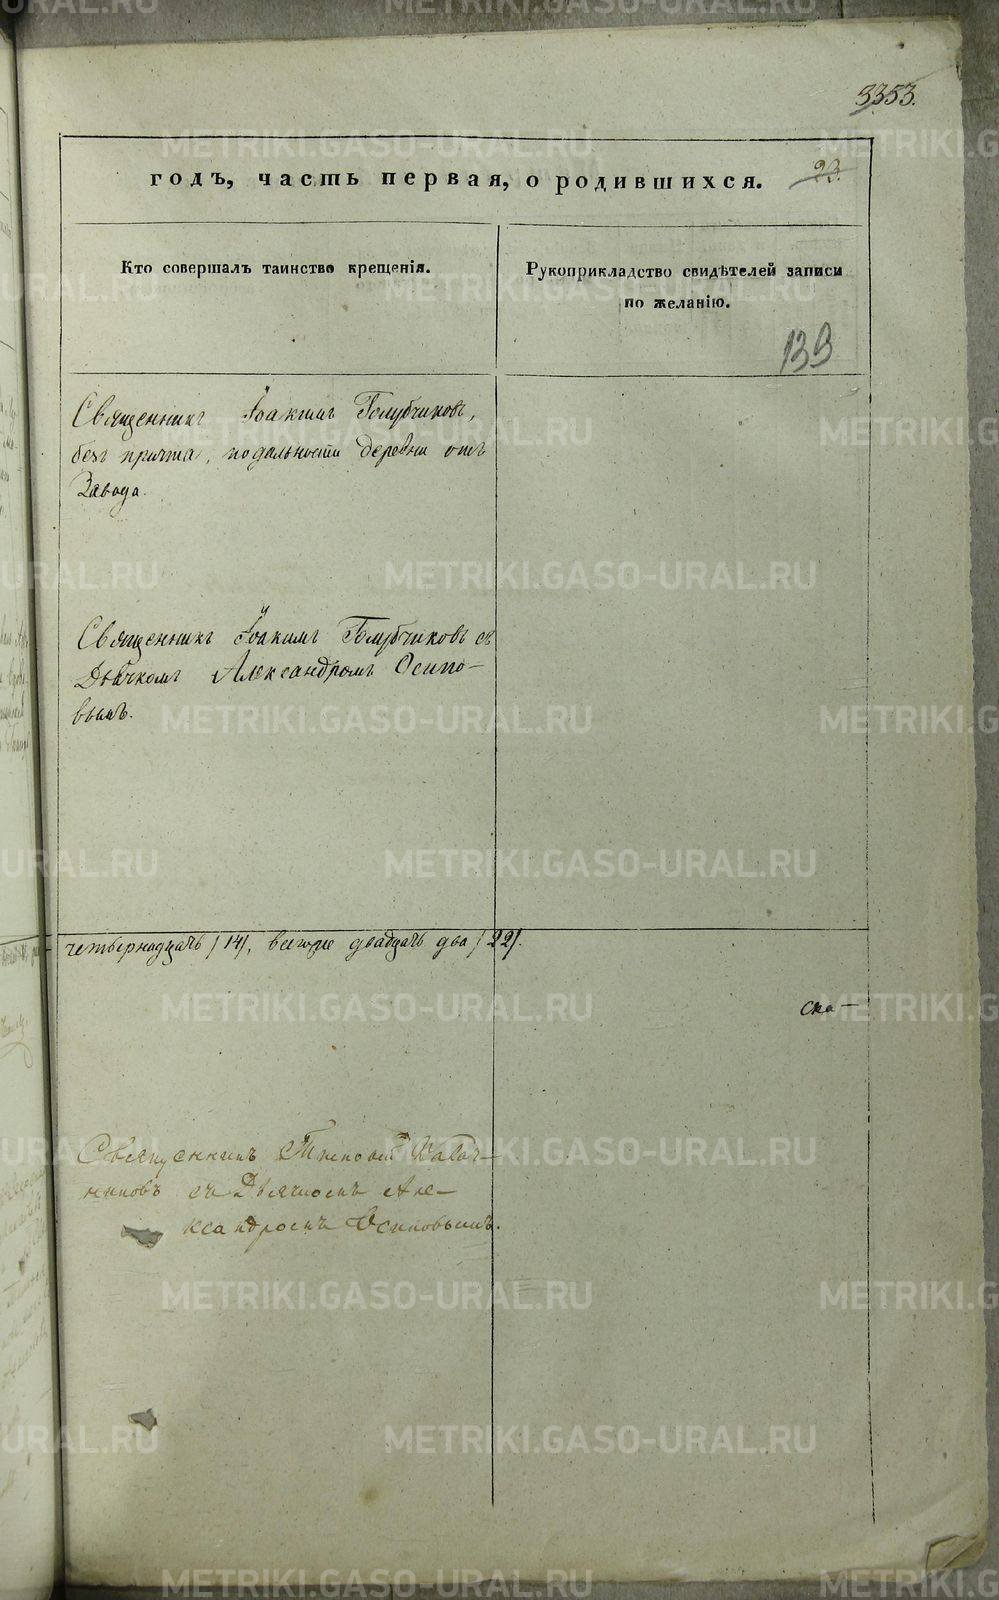 3353.
годъ, часть первая, о родившихся.
23.
Кто совершалъ таинство крещенія.
Рукоприкладство свидѣтелей записи
по желанію.
139
Священникъ Іоакимъ Голубчиковъ,
безъ причта, по дальности деревни отъ
Завода.
Священникъ Іоакимъ Голубчиковъ съ
Дьячкомъ Александромъ Осипо-
вымъ.
четырнадцать /14/, всегоже двадцать два /22/.
ска-
Священникъ
съ Дьячкомъ Але-
ксандромъ Осиповымъ.
METRIKI.GASO-URAL.RU